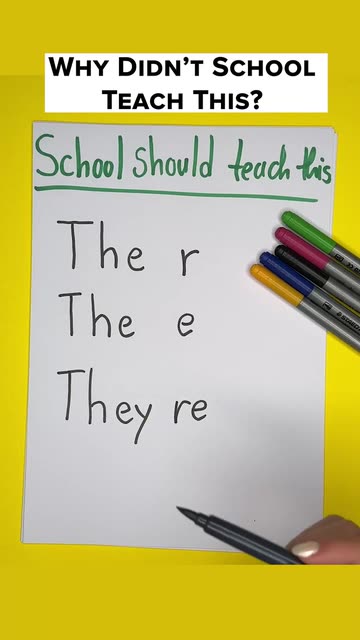 WHY DIDN'T SCHOOL
TEACH THIS?
School should teach this
The r
The e
They re